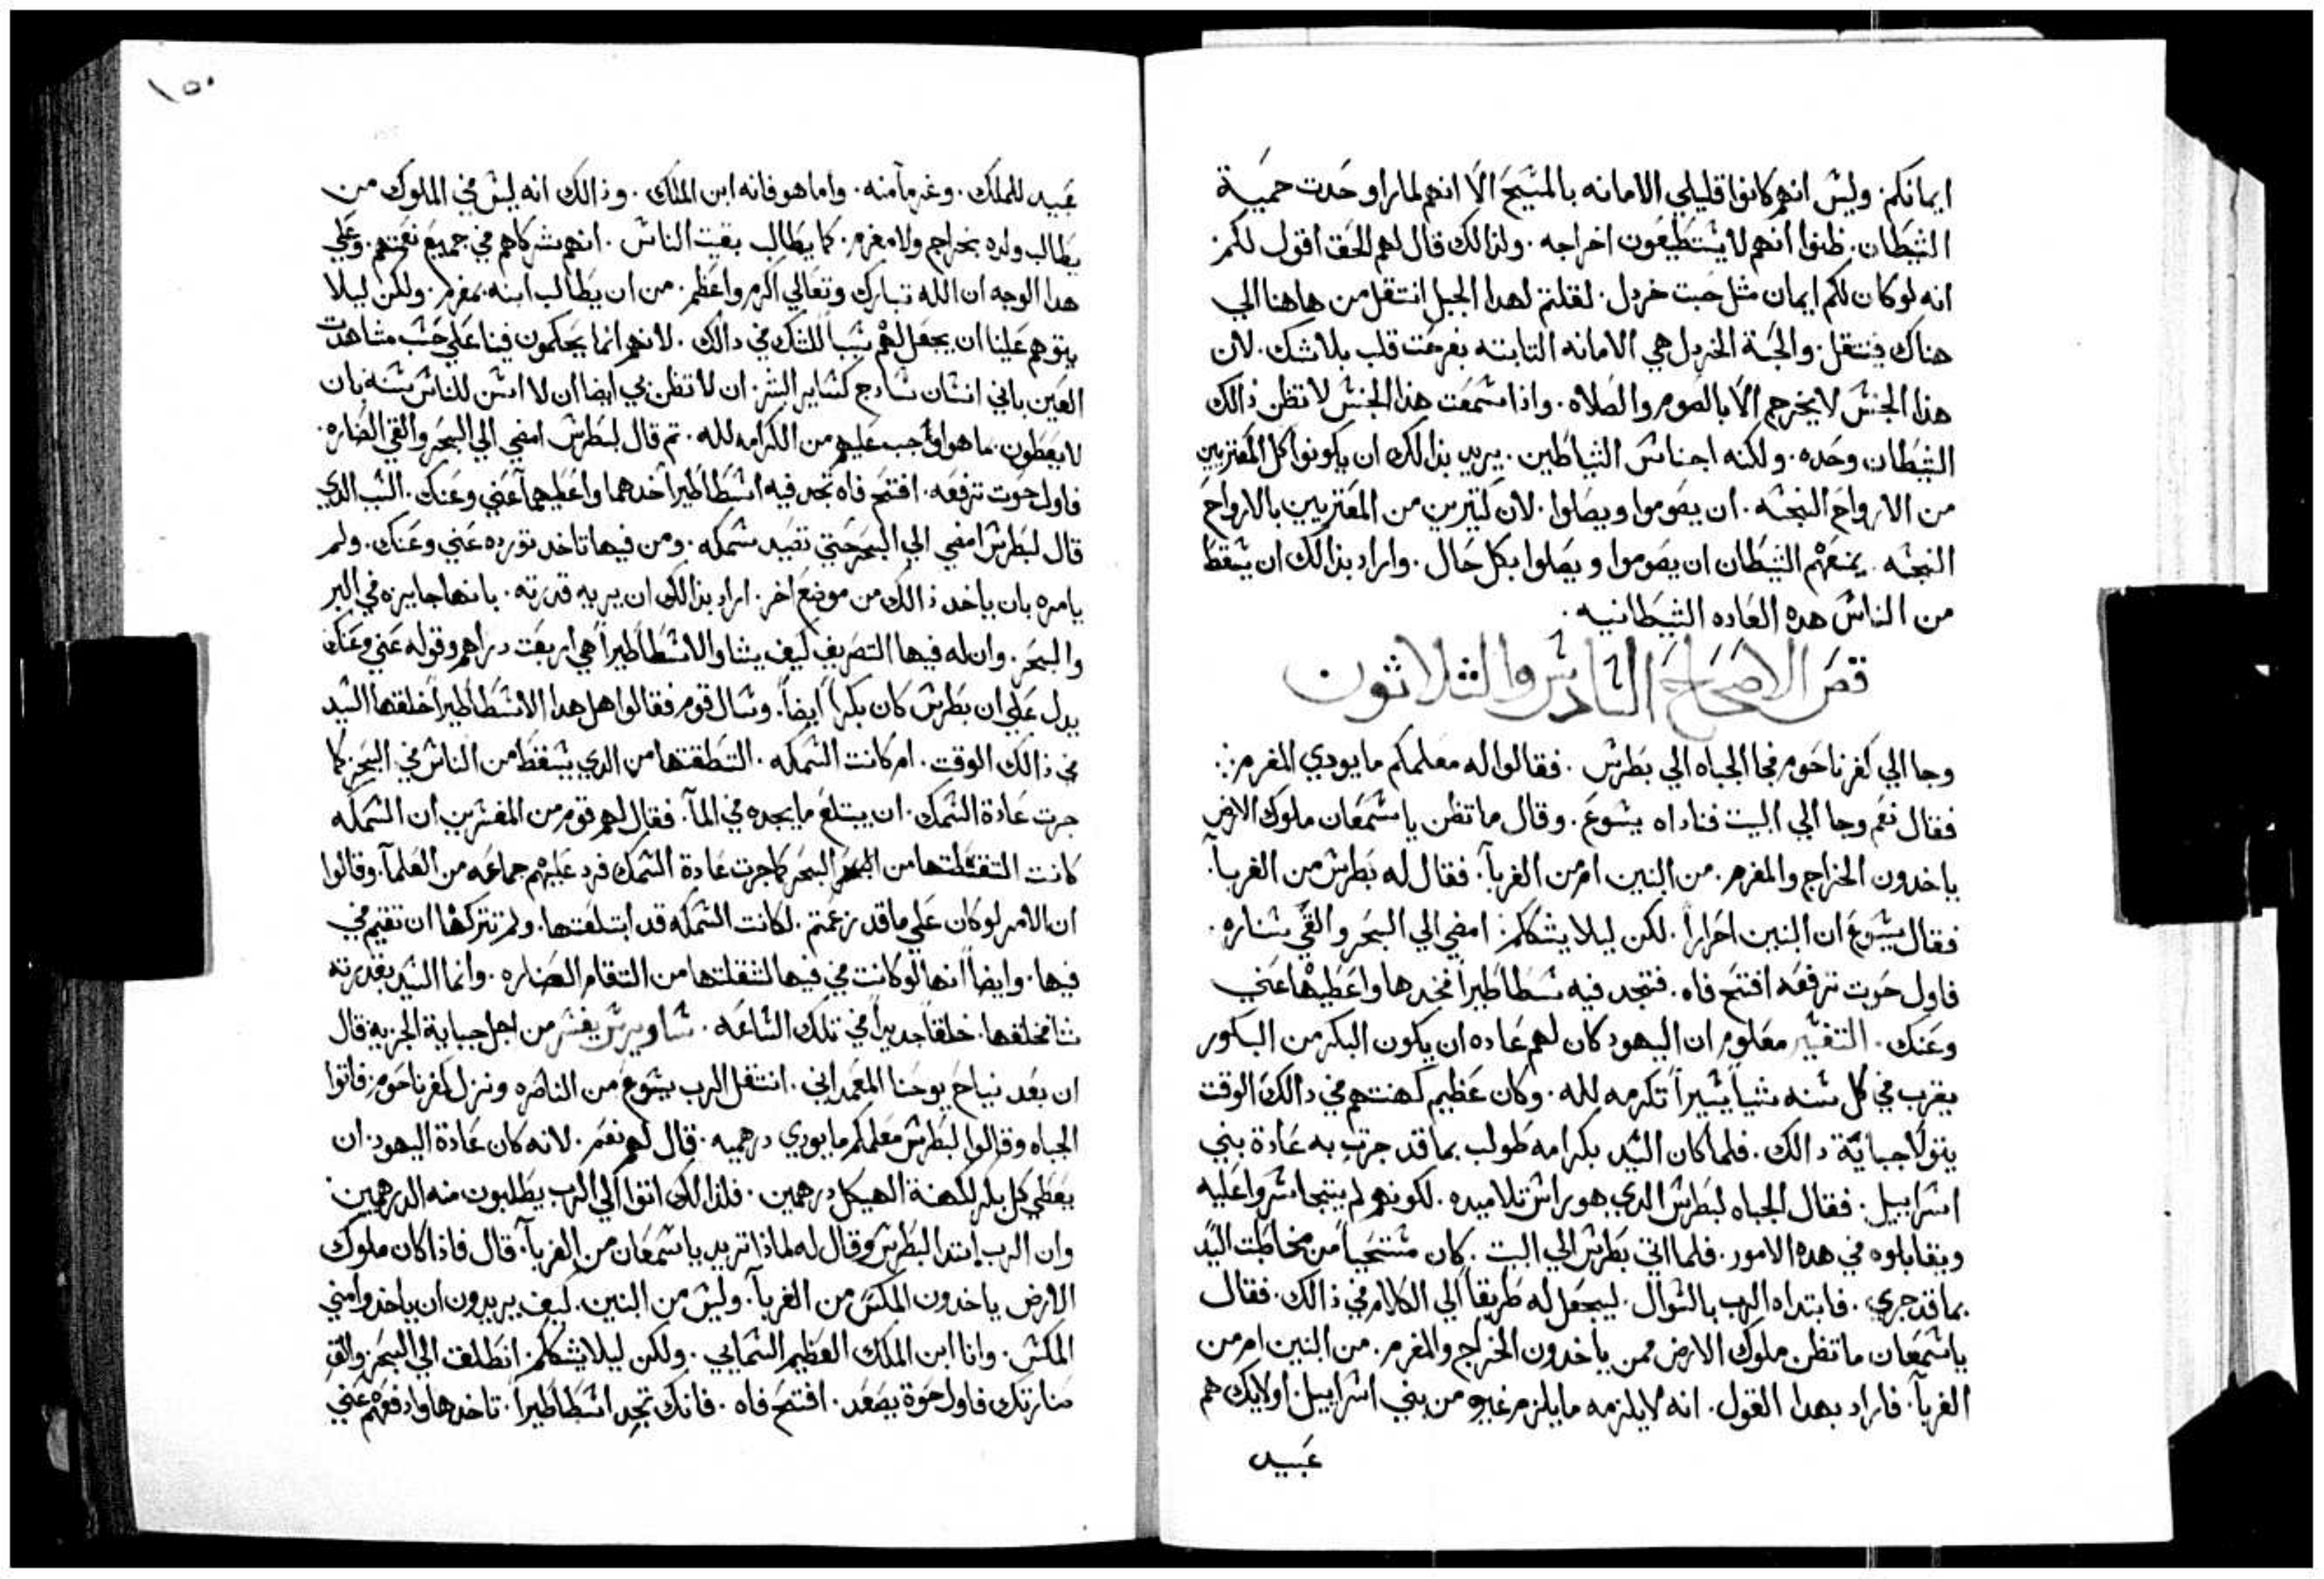 ايمانكم. وليس انهم كانوا قليلي الامانه بالمسيح الا انهم لما راوا حدت حمية
الشيطان. ظنوا انهم لا يستطيعون اخراجه. ولذالك قال لهم الحق اقول لكم.
انه لو كان لكم ايمان مثل حبت خردل. لقلتم لهدا الجبل انتقل من هاهنا الي
هناك فينتقل. والحبة الخردل هي الامانه التابته بفرحت قلب بلا شك. لان
هذا الجنس لا يخرج الا بالصوم والصلاه. واذا سمعت هذا الجنس لا تظن ذالك
الشيطان وحده. ولكنه اجناس الشياطين. يريد بذالك ان يكونوا كل المعتريين
من الارواح النجسه. ان يصوموا ويصلوا. لان كتيرين من المعتريين بالارواح
النجسه. يمنعهم الشيطان ان يصوموا ويصلوا بكل حال. واراد بذالك ان يسقط
من الناس هده العاده الشيطانيه.
قص الاصحاح السادس والثلاثون
وجا الي كفرناحوم فجا الجباه الي بطرس. فقالوا له معلمكم ما يودي المغرم.
فقال نعم وجا الي البيت فناداه يسوع. وقال ما تظن يا سمعان ملوك الارض
ياخدون الخراج والمغرم. من البنين ام من الغربآ. فقال له بطرس من الغربآ.
فقال يسوع ان البنين احراراً. لكن ليلا يشككم. امضي الي البحر والقي سناره.
فاول حوت ترفعه افتح فاه. فتجد فيه سطاطيراً فخدها واعطيها عني
وعنك. التفسير معلوم ان اليهود كان لهم عاده ان يكون البكر من البكور
يقرب في كل سنه شياً يسيراً تكرمه لله. وكان عظيم كهنتهم في دالك الوقت
يتولا جباية دالك. فلما كان السيد بكرا مه طولب بما قد جرت به عادة بني
اسراييل. فقال الجباه لبطرس الدي هو راس تلاميده. لكونهم لم يتجاسروا عليه
ويقابلوه في هده الامور. فلما اتي بطرس الي البت. كان مستحياً من مخاطبت السيد
بما قد جري. فابتداه الرب بالسوال. ليجعل له طريقاً الي الكلام في ذالك. فقال
يا سمعان ما تظن ملوك الارض ممن ياخدون الخراج والمغرم. من البنين ام من
الغربآ. فاراد بهدا القول. انه لا يلزمه ما يلزم غيره من بني اسراييل. اولايك هم
عبيد
١٥٠
عبيد للملك. وغرمآ منه. واما هو فانه ابن الملك. وذالك انه ليس في الملوك من
يطالب ولده بخراج ولا مغرم. كما يطالب بقيت الناس. انهم شركاهم في جميع نعمتهم. وعلي
هدا الوجه ان الله تبارك وتعالي اكرم واعظم. من ان يطالب ابنه بمغرم. ولكن ليلا
يتوهم علينا ان يجعل لهم سبباً للشك في دالك. لانهم انما يحكمون فينا علي حسب مشاهدت
العين باني انسان سادج كساير البشر. ان لا تظن بي ايضا ان لا اسن للناس سنه بان
لا يعطون. ما هو اوجب عليهم من الكرامه لله. تم قال لبطرس امضي الي البحر والقي الصاره.
فاول حوت ترفعه. افتح فاه تجد فيه اسطاطيراً خدهما واعطيهما عني وعنك. السبب الدي
قال لبطرس امضي الي البحر حتي تصيد سمكه. ومن فيها تاخد توديه عني وعنك. ولم
يامره بان ياخد ذالك من موضع اخر. اراد بذالك ان يريه قدرته. بانها جايزه في البر
والبحر. وان له فيها التصريف كيف يشا والاسطاطيراً هي اربعت دراهم وقوله عني وعنك
يدل علي ان بطرس كان بكراً ايضاً. وسال قوم فقالوا هل هدا الاسطاطيراً خلقها السيد
في ذالك الوقت. ام كانت السمكه. التطقتها من الدي يسقط من الناس في البحر. كما
جرت عادة السمك. ان يبتلع ما يجده في المآ. فقال لهم قوم من المفسرين ان السمكه
كانت التقتطتها من البحر كما جرت عادة السمك فرد عليهم جماعه من العلمآ. وقالوا
ان الامر لو كان علي ما قد زعمتم. لكانت السمكه قد ابتلعتها. ولم تتركها ان تقيم في
فيها. وايضاً انها لو كانت في فيها لشغلتها من التقام الصناره. وانما السيد بقدرته
شا فخلقها. خلقاً جديداً في تلك الساعه. ساويرس يفسر من اجل جباية الجزيه قال
ان بعد نياح يوحنا المعمداني. انتقل الرب يسوع من الناصره ونزل كفرناحوم. فاتوا
الجباه وقالوا لبطرس معلمكم ما يودي درهميه. قال لهم نعم. لانه كان عادة اليهود. ان
يعطي كل بكر لكهنة الهيكل درهمين. فلذالك اتوا الي الرب يطلبون منه الدرهمين.
وان الرب ابتدا لبطرس وقال له لماذا تريد يا سمعان من الغربآ. قال فاذا كان ملوك
الارض ياخدون المكس من الغربآ. وليس من البنين. كيف يريدون ان ياخدوا مني
المكس. وانا ابن الملك العظيم السمايي. ولكن ليلا يشككم. انطلق الي البحر. والق
صنارتك فاول حوة يصعد. افتح فاه. فانك تجد اسطاطيراً. تاخدها وادفعهم عني